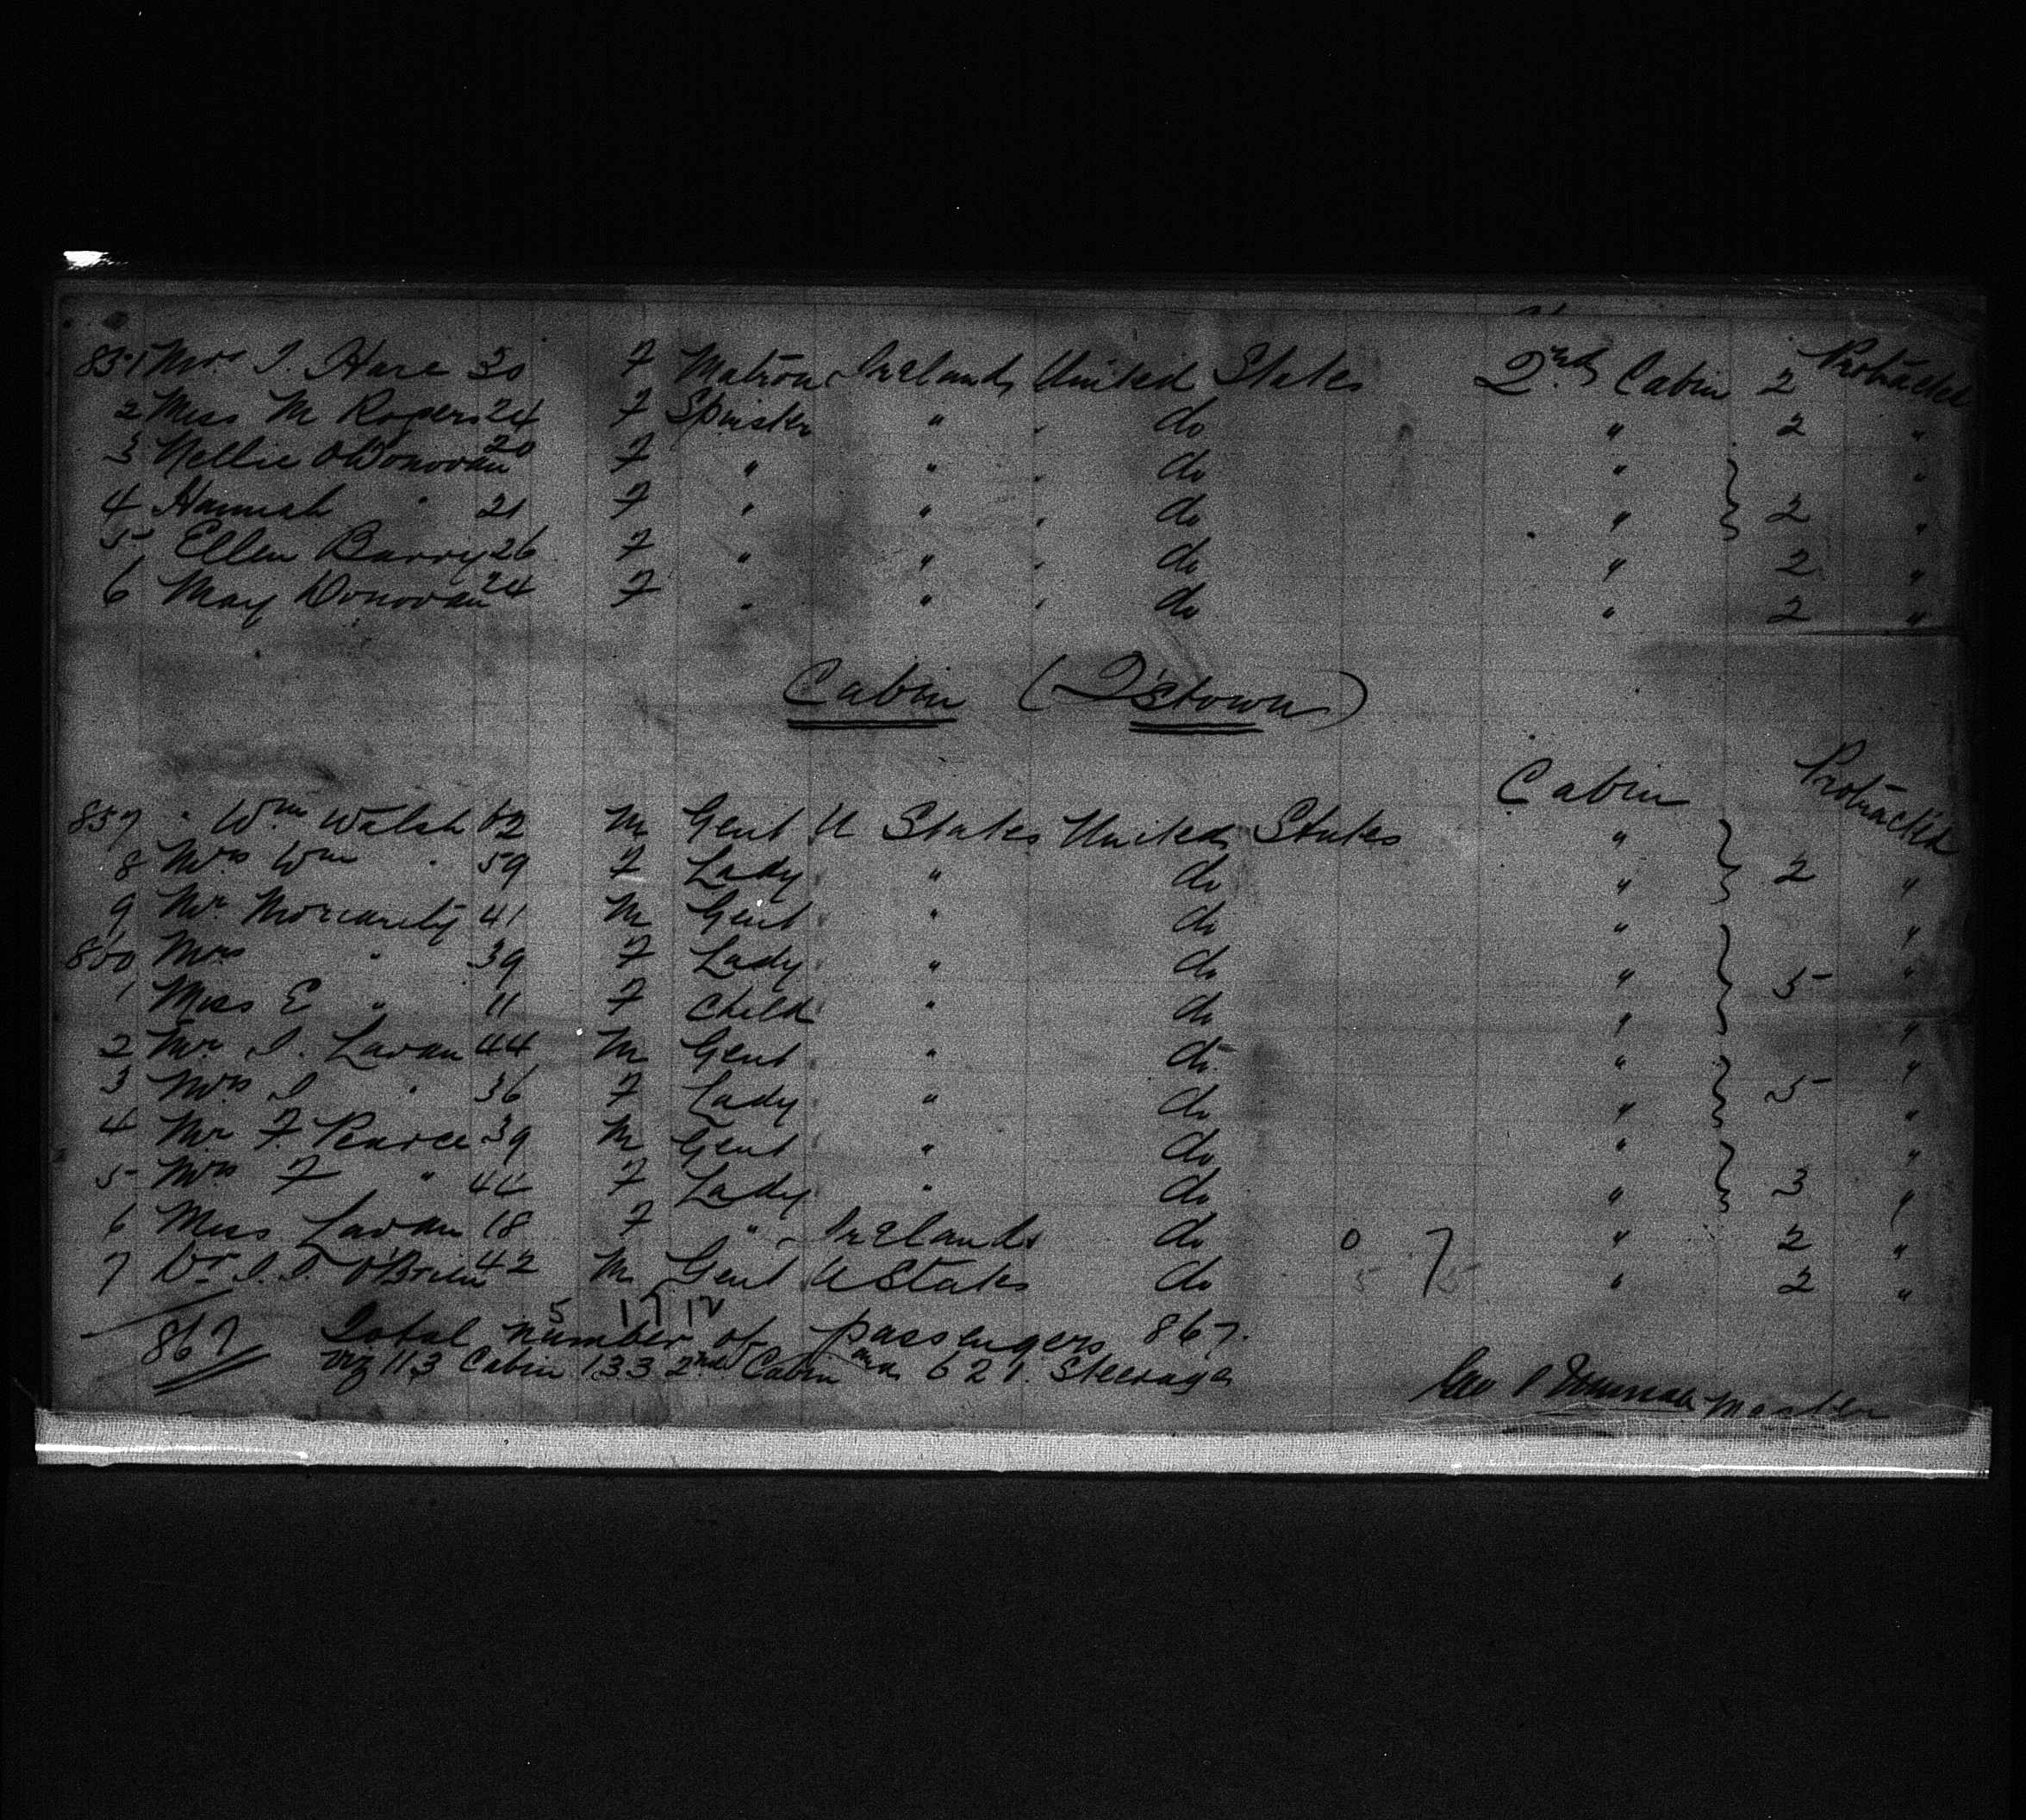 851 Mrs I. Hare 30 F Matron Ireland United States 2nd Cabin 2 Protracted
2 Miss M Rogers 24 F Spinster " " do " 2 "
3 Nellie O'Donovan 20 F " " " do " "
4 Hannah " 21 F " " " do " 2 "
5 Ellen Barry 26 F " " " do " 2 "
6 May Donovan 24 F " " " do " 2 "
Cabin (Q'stown)
Cabin Protracted
857 " Wm Walsh 62 M Gent U States United States "
8 Mrs Wm " 59 F Lady " do " 2 "
9 Mr Moriarity 41 M Gent " do " "
860 Mrs " 39 F Lady " do " 5 "
1 Miss E " 11 F Child " do " "
2 Mr I. Lavan 44 M Gent " do " "
3 Mrs I " 36 F Lady " do " 5 "
4 Mr F Pearce 39 M Gent " do " "
5 Mrs F " 44 F Lady " do " 3 "
6 Miss Lavan 18 F " Ireland do 0 7 " 2 "
7 Dr I. I. O'Brien 42 M Gent U States do 5 5 " 2 "
5 17 12
867 Total number of passengers 867.
viz 113 Cabin 133 2nd Cabin and 621. Steerage
Geo Master